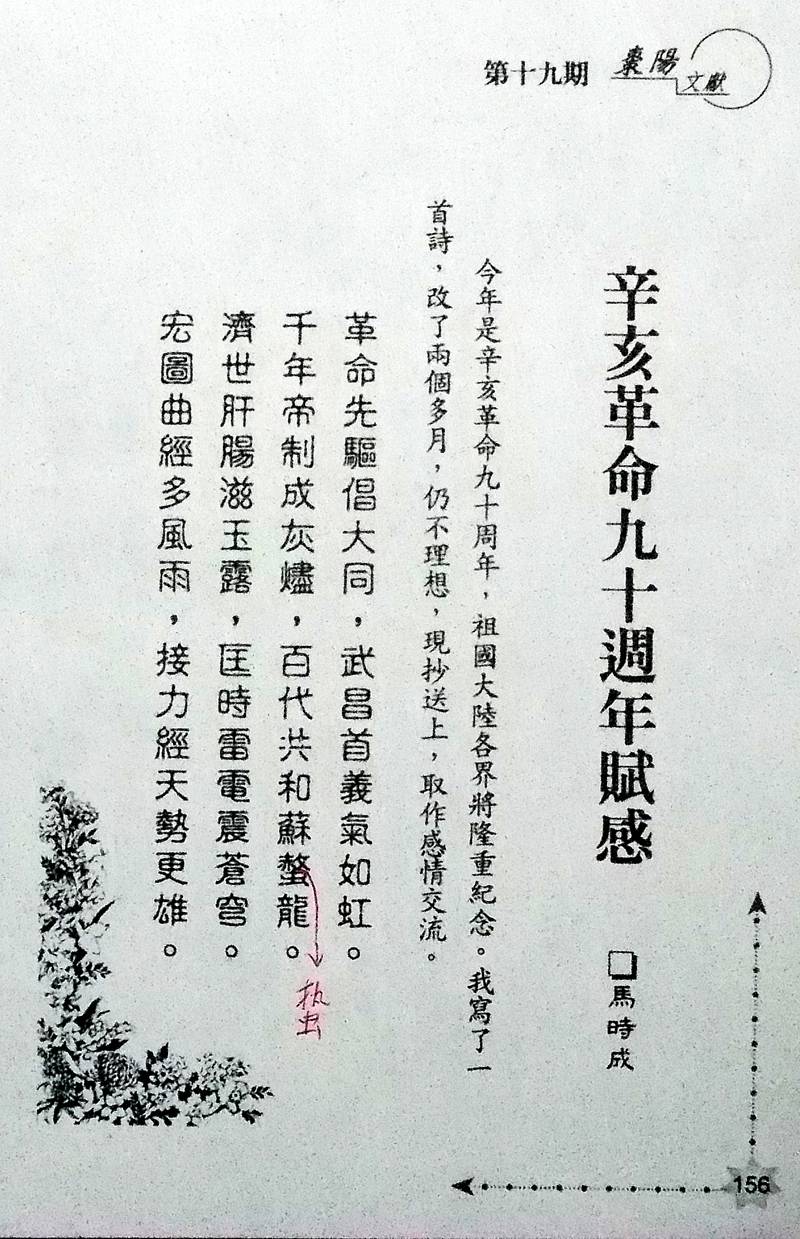 第十九期
棗陽
文獻
辛亥革命九十週年賦感
□馬時成
今年是辛亥革命九十周年，祖國大陸各界將隆重紀念。我寫了一
首詩，改了兩個多月，仍不理想，現抄送上，取作感情交流。
革命先驅倡大同，武昌首義氣如虹。
千年帝制成灰燼，百代共和蘇螯龍。
蛰
濟世肝腸滋玉露，匡時雷電震蒼穹。
宏圖曲經多風雨，接力經天勢更雄。
156